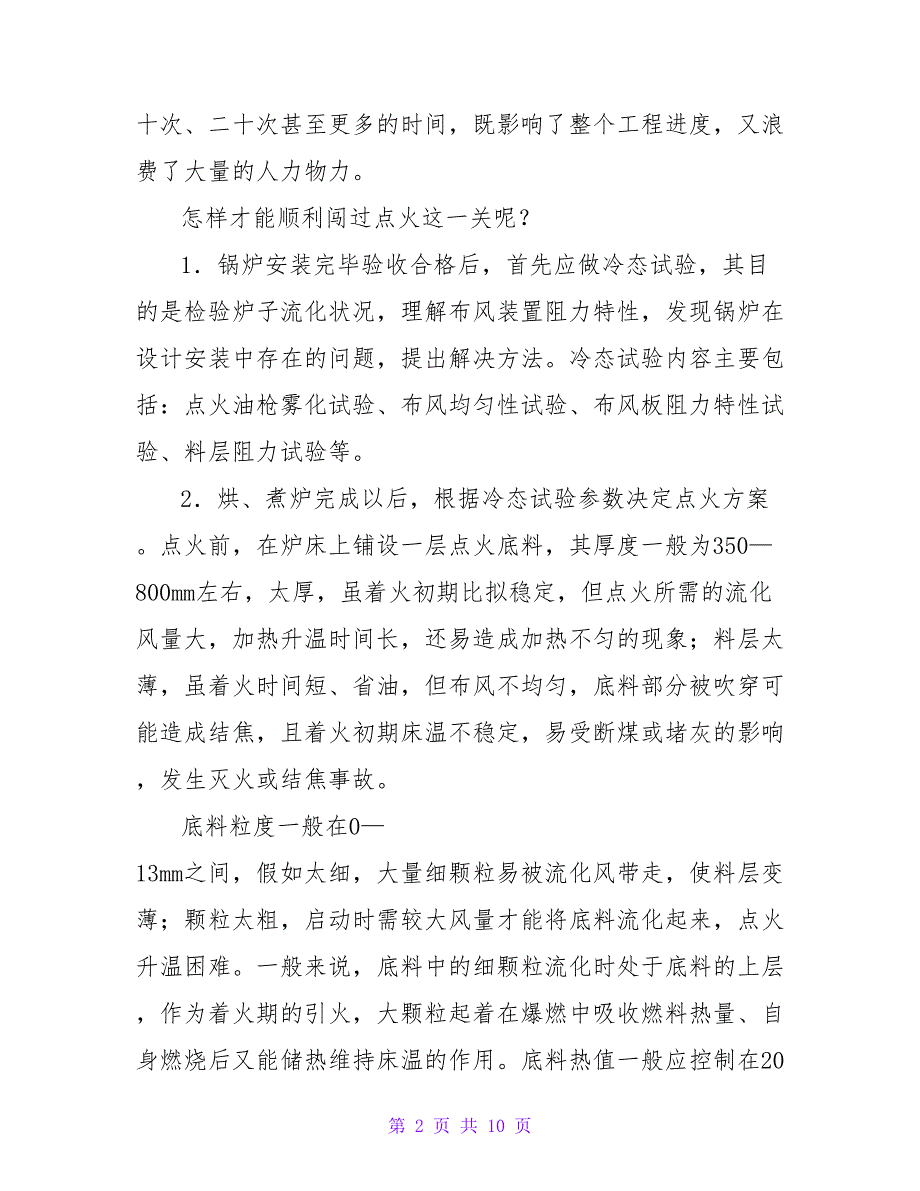 十次、二十次甚至更多的时间，既影响了整个工程进度，又浪
费了大量的人力物力。
怎样才能顺利闯过点火这一关呢？
1．锅炉安装完毕验收合格后，首先应做冷态试验，其目
的是检验炉子流化状况，理解布风装置阻力特性，发现锅炉在
设计安装中存在的问题，提出解决方法。冷态试验内容主要包
括：点火油枪雾化试验、布风均匀性试验、布风板阻力特性试
验、料层阻力试验等。
2．烘、煮炉完成以后，根据冷态试验参数决定点火方案
。点火前，在炉床上铺设一层点火底料，其厚度一般为350—
800mm左右，太厚，虽着火初期比拟稳定，但点火所需的流化
风量大，加热升温时间长，还易造成加热不匀的现象；料层太
薄，虽着火时间短、省油，但布风不均匀，底料部分被吹穿可
能造成结焦，且着火初期床温不稳定，易受断煤或堵灰的影响
，发生灭火或结焦事故。
底料粒度一般在0—
13mm之间，假如太细，大量细颗粒易被流化风带走，使料层变
薄；颗粒太粗，启动时需较大风量才能将底料流化起来，点火
升温困难。一般来说，底料中的细颗粒流化时处于底料的上层
，作为着火期的引火，大颗粒起着在爆燃中吸收燃料热量、自
身燃烧后又能储热维持床温的作用。底料热值一般应控制在20
第 2 页 共 10 页